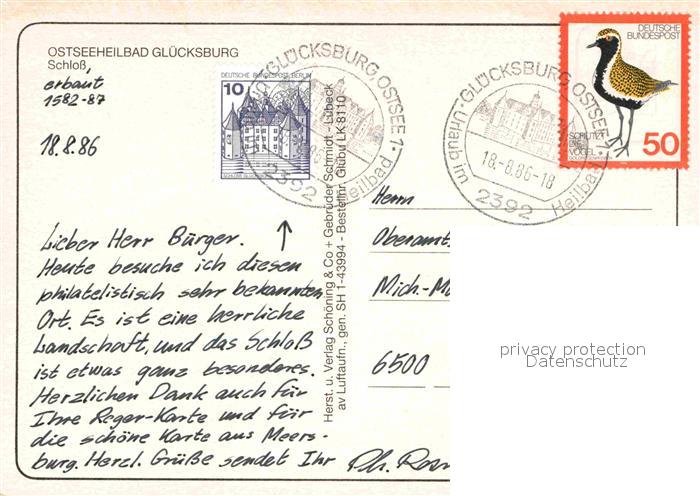 OSTSEEHEILBAD GLÜCKSBURG
Schloß,
erbaut
1582-87
18.8.86
DEUTSCHE BUNDESPOST BERLIN
10
SCHLOSS GLÜCKSBURG
GLÜCKSBURG, OSTSEE 1
2392
Heilbad
GLÜCKSBURG, OSTSEE
18.-8.86-18
Urlaub im
2392
Heilbad
DEUTSCHE
BUNDESPOST
SCHÜTZT
DIE
VÖGEL
50
Lieber Herr Bürger.
Heute besuche ich diesen
philatelistisch sehr bekannten
Ort. Es ist eine herrliche
Landschaft, und das Schloß
ist etwas ganz besonderes.
Herzlichen Dank auch für
Ihre Reger-Karte und für
die schöne Karte aus Meers-
burg. Herzl. Grüße sendet Ihr
Herst. u. Verlag Schöning & Co + Gebrüder Schmidt - Lübeck
av Luftaufn., gen. SH 1-43994 - Bestellnr. Glübu LK 8110
Herrn
Oberamts
Mich.-Ma
6500
privacy protection
Datenschutz